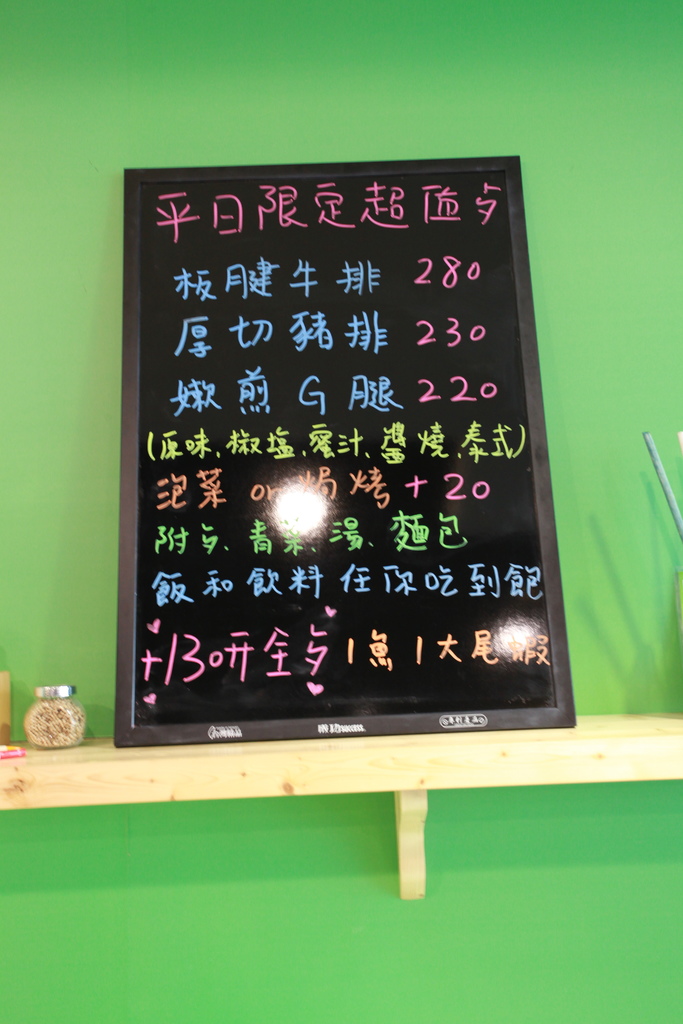 平日限定超值歺
板腱牛排 280
厚切豬排 230
嫩煎G腿 220
(原味、椒塩、蜜汁、醬燒、泰式)
泡菜 or 焗烤 +20
附歺、青菜、湯、麵包
飯和飲料任你吃到飽
+130呀全歺 1魚 1大尾蝦
專利產品